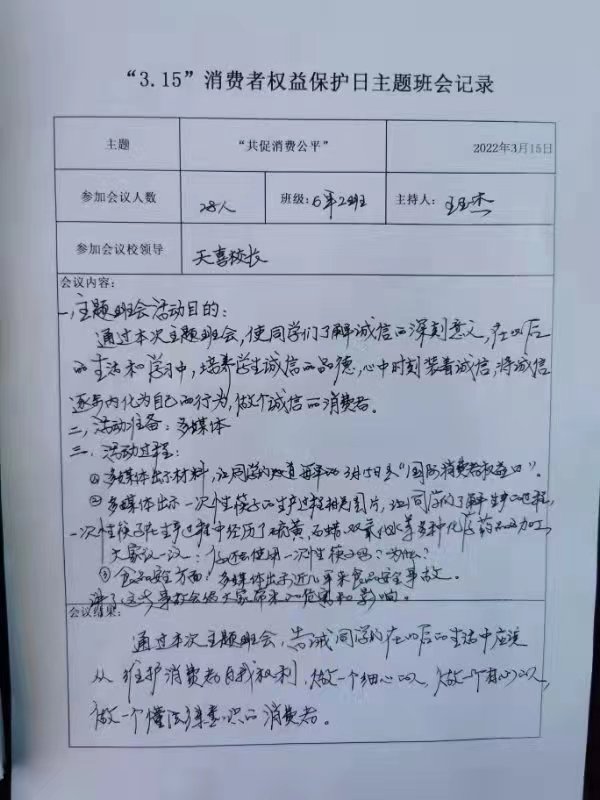 “3.15”消费者权益保护日主题班会记录
主题 “共促消费公平” 2022年3月15日
参加会议人数 28人 班级:6年2班 主持人:
参加会议校领导 天喜校长
会议内容:
一,主题班会活动目的:
通过本次主题班会,使同学们了解诚信的深刻意义,在以后
的生活和学习中,培养学生诚信的品德,心中时刻装着诚信,将诚信
逐步内化为自己的行为,做个诚信的消费者。
二,活动准备:多媒体
三.活动过程:
①多媒体出示材料,让同学们知道每年的3月15日是“国际消费者权益日”。
②多媒体出示一次性筷子的生产过程相关图片,让同学们了解生产的过程,
一次性筷子在生产过程中经历了硫黄,石蜡,双氧水等多种化学药品的加工,
大家议一议:你还会使用一次性筷子吗?为什么?
③食品安全方面:多媒体出示近几年来食品安全事故。
这些事故会给大家带来的危害和影响。
会议结果:
通过本次主题班会,告诫同学们在以后的生活中应该
从维护消费者自我权利,做一个细心的人,做一个有心的人,
做一个懂法律意识的消费者。